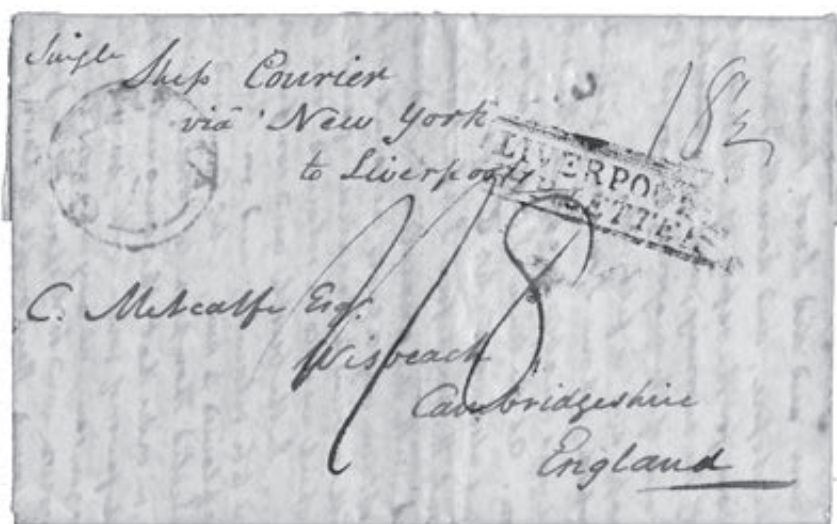 Single
Ship Courier
via New York
to Liverpool
18½
LIVERPOOL
LETTER
1/8
C. Metcalfe Esqr.
Wisbeach
Cambridgeshire
England